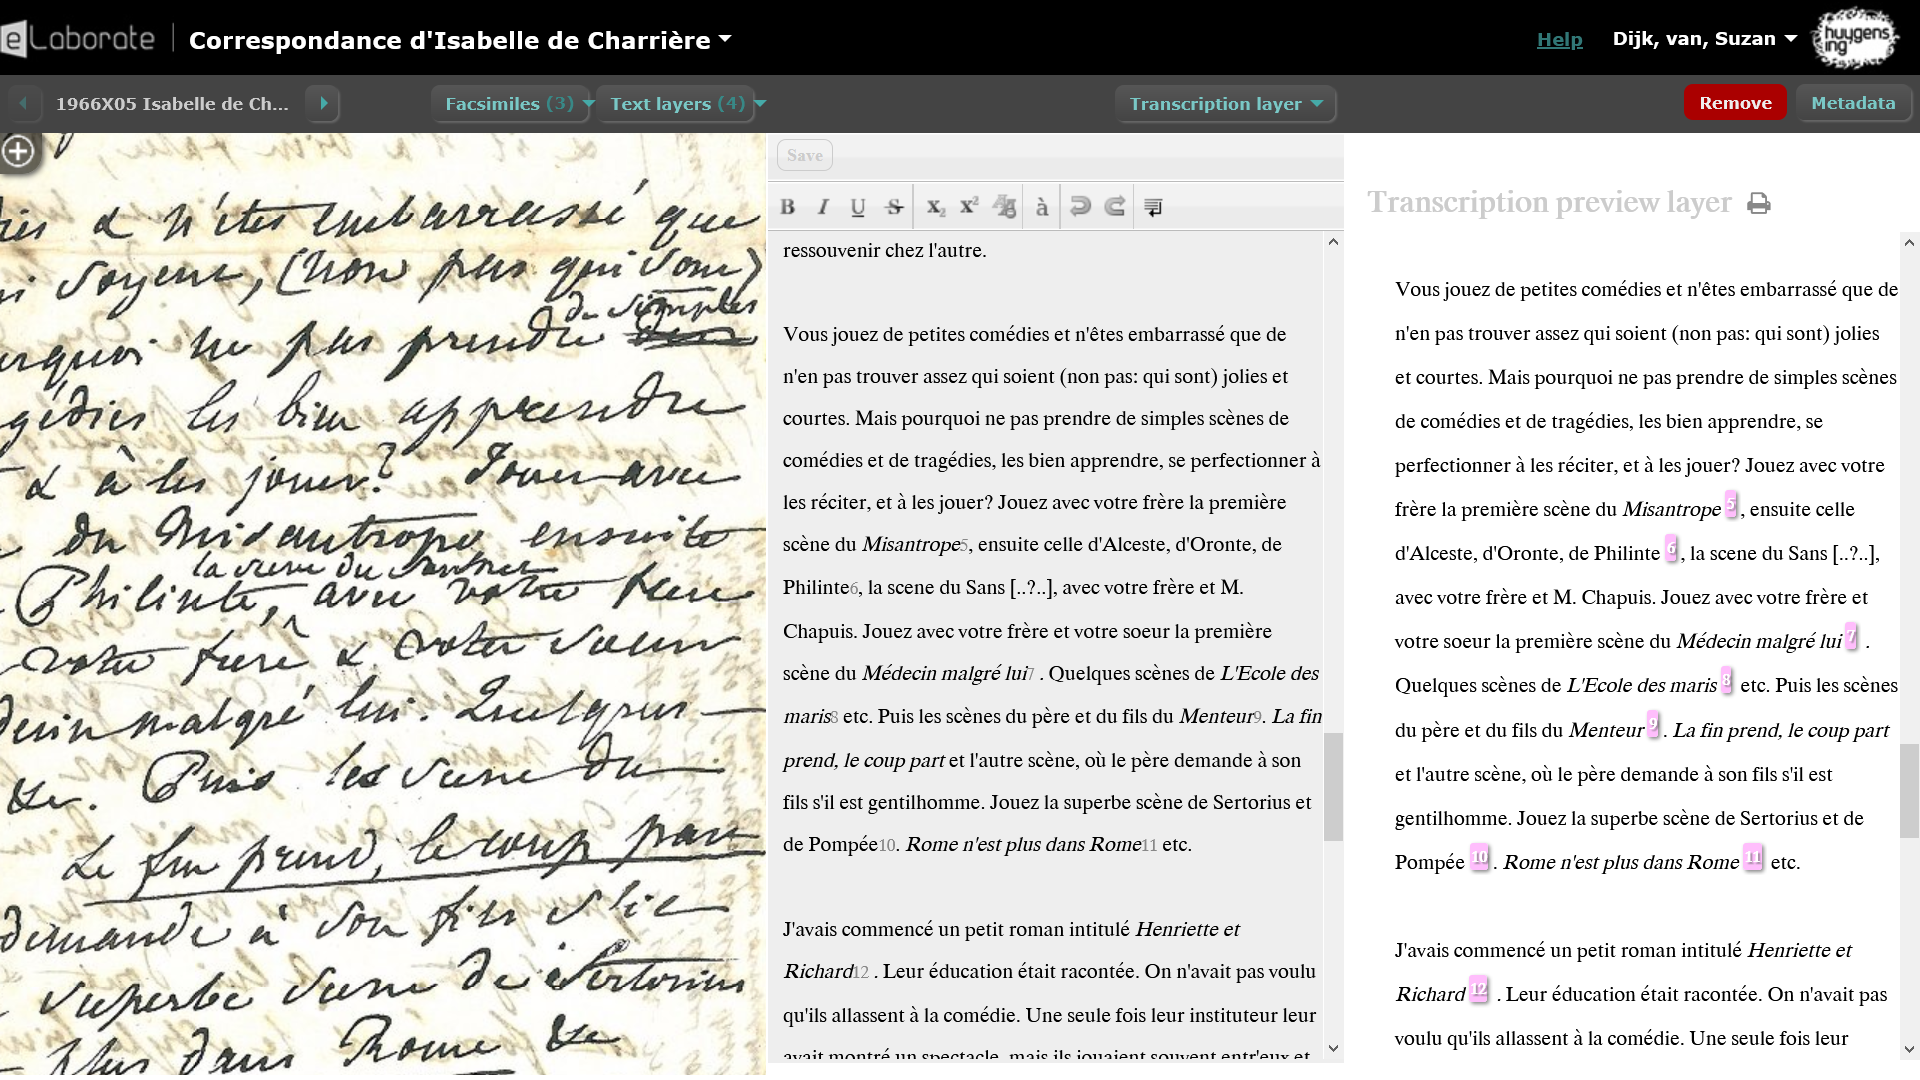 eLaborate
Correspondance d'Isabelle de Charrière
Help
Dijk, van, Suzan
huygens
ing
1966X05 Isabelle de Ch...
Facsimiles (3)
Text layers (4)
Transcription layer
Remove
Metadata
& n'êtes embarrassé que
soyent, (non pas qui sont)
de simples
ne pas prendre
les bien apprendre
& à les jouer? Jouez avec
du Misantrope ensuite
la scene du
Philinte, avec votre frere
votre frere & votre soeur
malgré lui. Quelques
&c. Puis les scene du
La fin prend, le coup part
demande à son fils s'il e
superbe scene de Sertorius
plus dans Rome &c
Save
B I U S x₂ x² à
ressouvenir chez l'autre.
Vous jouez de petites comédies et n'êtes embarrassé que de
n'en pas trouver assez qui soient (non pas: qui sont) jolies et
courtes. Mais pourquoi ne pas prendre de simples scènes de
comédies et de tragédies, les bien apprendre, se perfectionner à
les réciter, et à les jouer? Jouez avec votre frère la première
scène du Misantrope5, ensuite celle d'Alceste, d'Oronte, de
Philinte6, la scene du Sans [..?..], avec votre frère et M.
Chapuis. Jouez avec votre frère et votre soeur la première
scène du Médecin malgré lui7 . Quelques scènes de L'Ecole des
maris8 etc. Puis les scènes du père et du fils du Menteur9. La fin
prend, le coup part et l'autre scène, où le père demande à son
fils s'il est gentilhomme. Jouez la superbe scène de Sertorius et
de Pompée10. Rome n'est plus dans Rome11 etc.
J'avais commencé un petit roman intitulé Henriette et
Richard12 . Leur éducation était racontée. On n'avait pas voulu
qu'ils allassent à la comédie. Une seule fois leur instituteur leur
avait montré un spectacle, mais ils jouaient souvent entr'eux et
Transcription preview layer
Vous jouez de petites comédies et n'êtes embarrassé que de
n'en pas trouver assez qui soient (non pas: qui sont) jolies
et courtes. Mais pourquoi ne pas prendre de simples scènes
de comédies et de tragédies, les bien apprendre, se
perfectionner à les réciter, et à les jouer? Jouez avec votre
frère la première scène du Misantrope 5 , ensuite celle
d'Alceste, d'Oronte, de Philinte 6 , la scene du Sans [..?..],
avec votre frère et M. Chapuis. Jouez avec votre frère et
votre soeur la première scène du Médecin malgré lui 7 .
Quelques scènes de L'Ecole des maris 8 etc. Puis les scènes
du père et du fils du Menteur 9 . La fin prend, le coup part
et l'autre scène, où le père demande à son fils s'il est
gentilhomme. Jouez la superbe scène de Sertorius et de
Pompée 10 . Rome n'est plus dans Rome 11 etc.
J'avais commencé un petit roman intitulé Henriette et
Richard 12 . Leur éducation était racontée. On n'avait pas
voulu qu'ils allassent à la comédie. Une seule fois leur